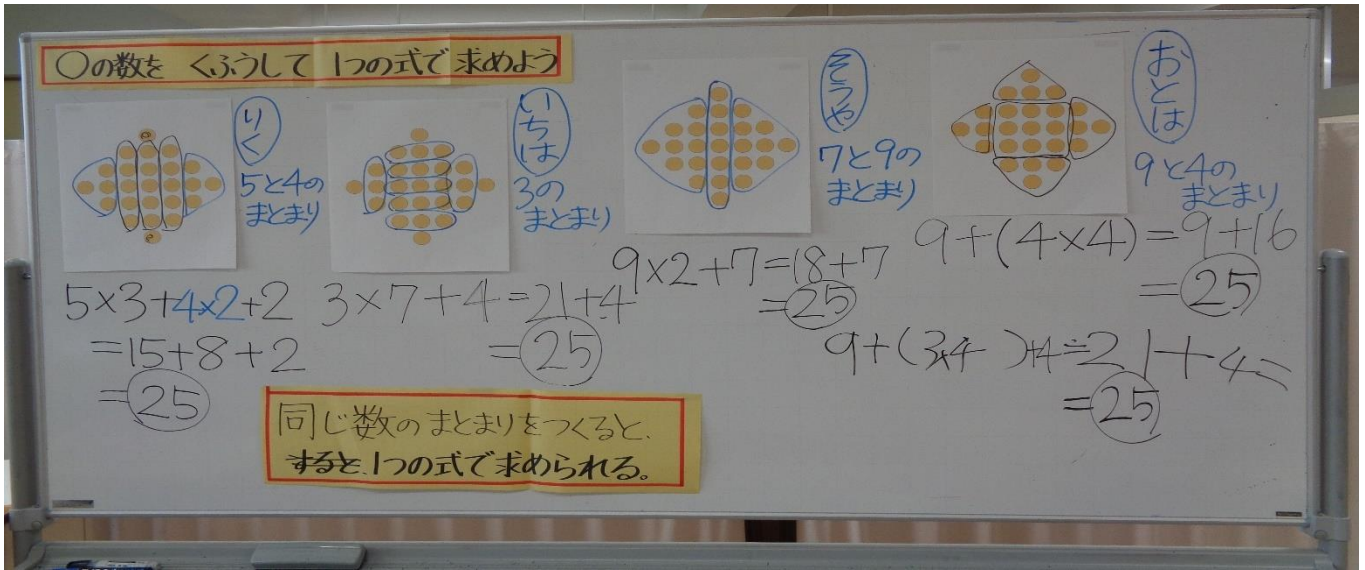 ○の数を くふうして 1つの式で求めよう
りく
5と4の
まとまり
5×3+4×2+2
=15+8+2
=25
いちは
3の
まとまり
3×7+4=21+4
=25
そうや
7と9の
まとまり
9×2+7=18+7
=25
おとは
9と4の
まとまり
9+(4×4)=9+16
=25
9+(3×4 )+4=21+4=
=25
同じ数のまとまりをつくると、
すると、1つの式で求められる。